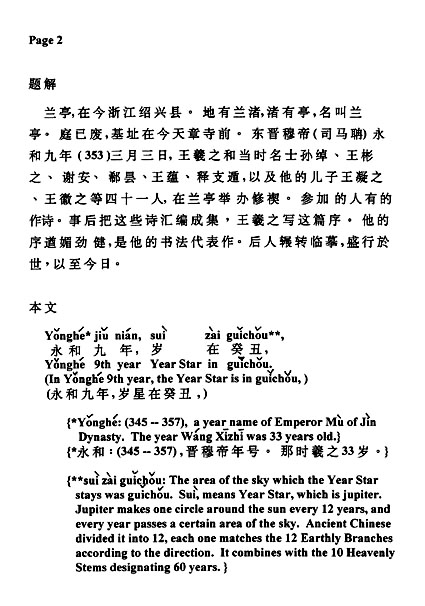 Page 2
题解
兰亭,在今浙江绍兴县。 地有兰渚,渚有亭,名叫兰
亭。 庭已废,基址在今天章寺前。 东晋穆帝(司马聃) 永
和九年 (353)三月三日, 王羲之和当时名士孙绰、王彬
之、 谢安、 郗昙、王蕴、释支遁,以及他的儿子王凝之
、王徽之等四十一人, 在兰亭举 办修禊。 参加 的人有的
作诗。事后把这些诗汇编成集, 王羲之写这篇序。 他的
序遒媚劲 健,是他的书法代表作。后人辗转临摹,盛行於
世, 以至今日。
本文
Yǒnghé* jiǔ nián, suì zài guǐchǒu**,
永 和 九 年, 岁 在 癸 丑,
Yǒnghé 9th year Year Star in guǐchǒu,
(In Yǒnghé 9th year, the Year Star is in guǐchǒu, )
(永和九年,岁星在癸丑 ,)
{*Yǒnghé: (345 -- 357), a year name of Emperor Mù of Jìn
Dynasty. The year Wáng Xīzhī was 33 years old.}
{*永和:(345 -- 357),晋穆帝年号。 那时羲之33 岁。}
{**suì zài guǐchǒu: The area of the sky which the Year Star
stays was guǐchǒu. Suì, means Year Star, which is jupiter.
Jupiter makes one circle around the sun every 12 years, and
every year passes a certain area of the sky. Ancient Chinese
divided it into 12, each one matches the 12 Earthly Branches
according to the direction. It combines with the 10 Heavenly
Stems designating 60 years. }